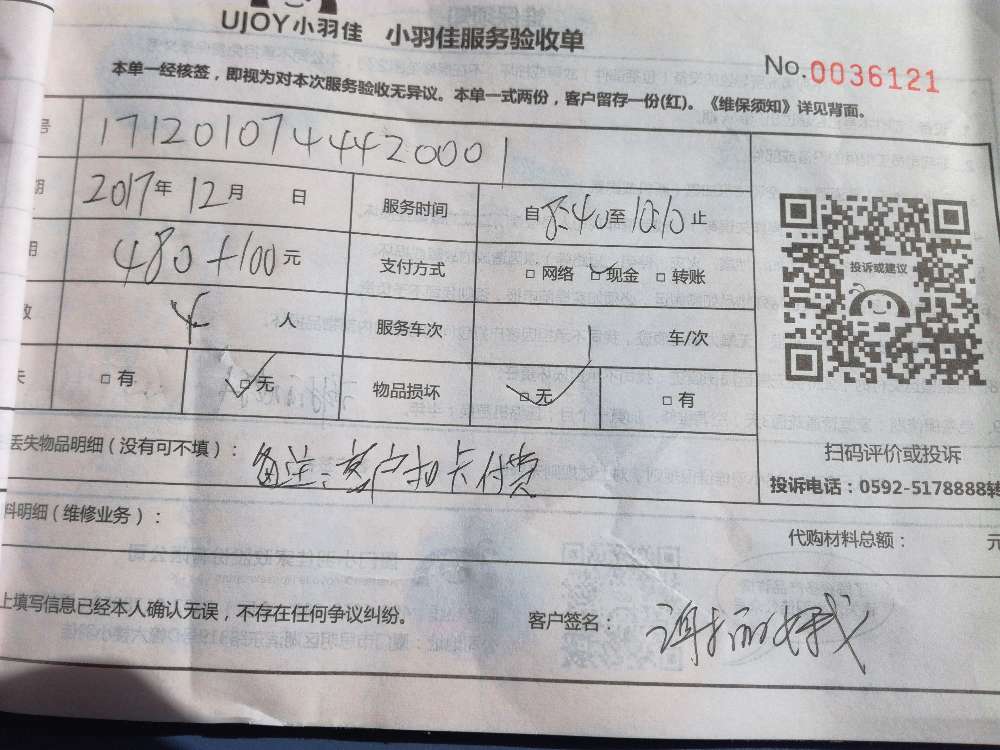 UJOY小羽佳 小羽佳服务验收单
No.0036121
本单一经核签，即视为对本次服务验收无异议。本单一式两份，客户留存一份(红)。《维保须知》详见背面。
号 1712010744420001
期 2017年 12月 日 服务时间 自8:40至10:10止
用 480+100元 支付方式 □网络 □现金 □转账
数 人 服务车次 车/次
失 □有 □无 物品损坏 □无 □有
投诉或建议
扫码评价或投诉
投诉电话：0592-5178888转
丢失物品明细（没有可不填）： 备注：客户扣卡付费
料明细（维修业务）： 代购材料总额： 元
上填写信息已经本人确认无误，不存在任何争议纠纷。 客户签名：